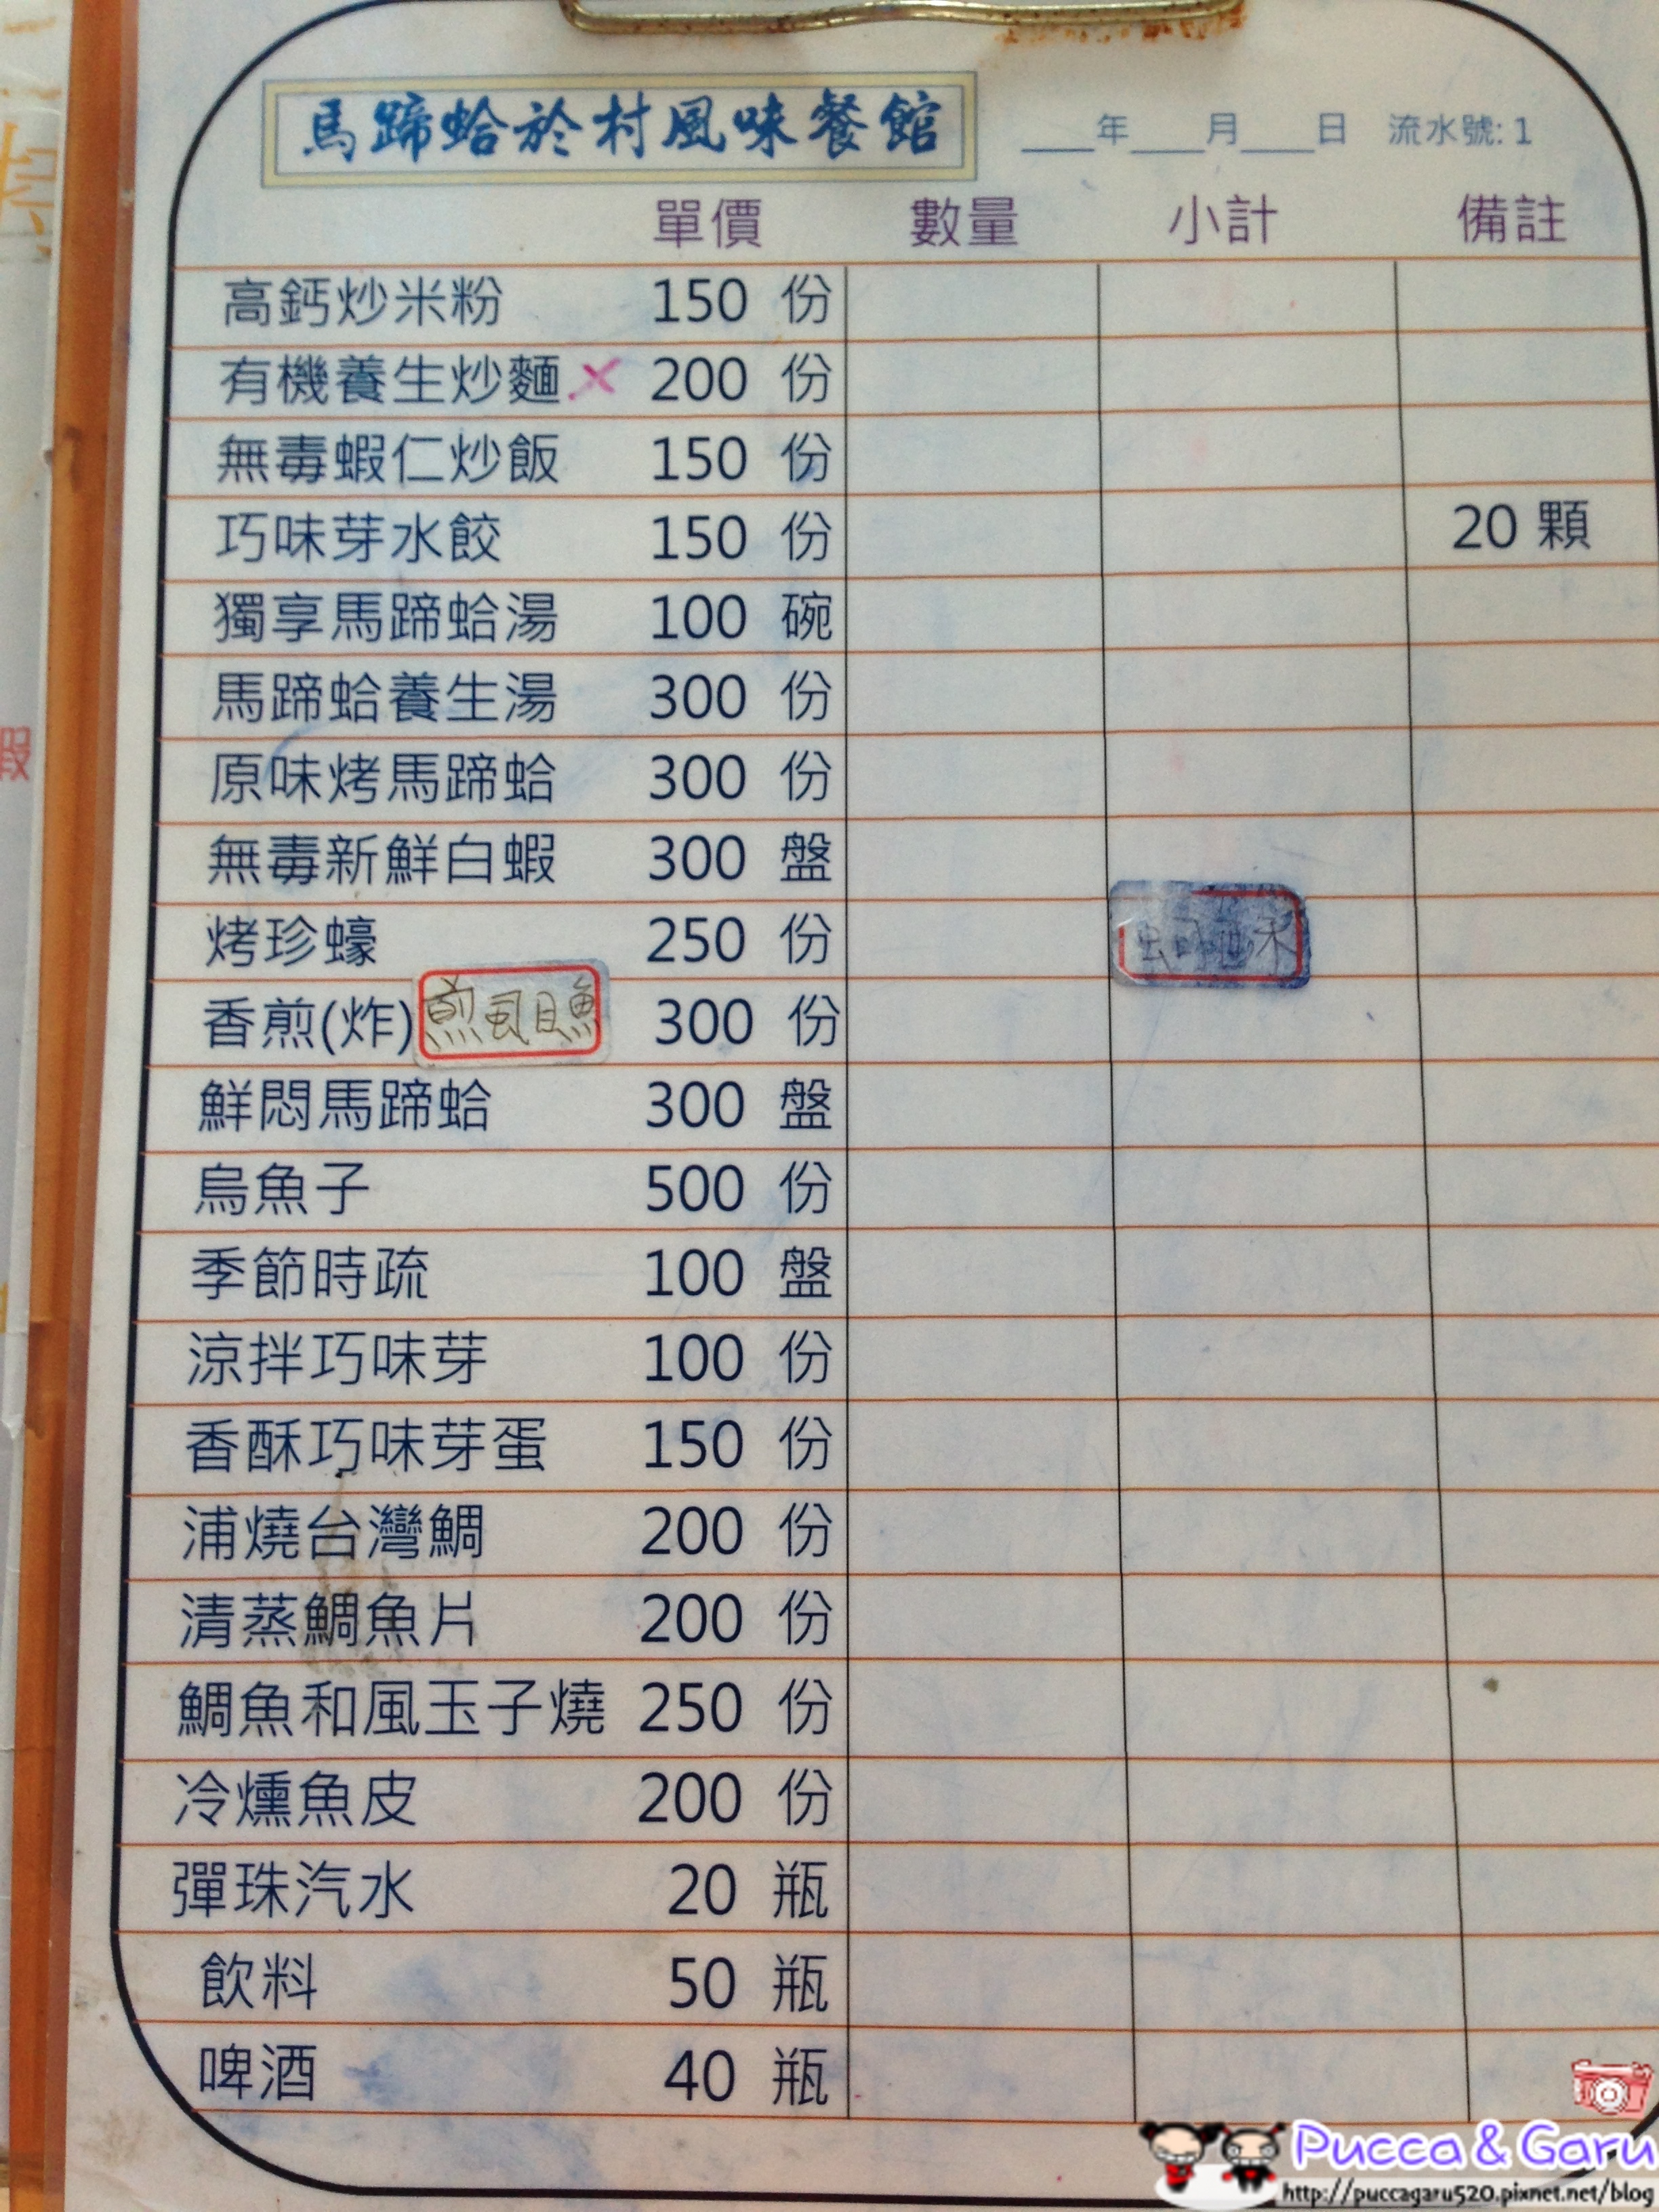 馬蹄蛤於村風味餐館 ____年____月____日 流水號: 1
單價 數量 小計 備註
高鈣炒米粉 150 份
有機養生炒麵 × 200 份
無毒蝦仁炒飯 150 份
巧味芽水餃 150 份 20 顆
獨享馬蹄蛤湯 100 碗
馬蹄蛤養生湯 300 份
原味烤馬蹄蛤 300 份
無毒新鮮白蝦 300 盤
烤珍蠔 250 份
香煎(炸) 煎虱目魚 300 份
鮮悶馬蹄蛤 300 盤
烏魚子 500 份
季節時疏 100 盤
涼拌巧味芽 100 份
香酥巧味芽蛋 150 份
浦燒台灣鯛 200 份
清蒸鯛魚片 200 份
鯛魚和風玉子燒 250 份
冷燻魚皮 200 份
彈珠汽水 20 瓶
飲料 50 瓶
啤酒 40 瓶
Pucca & Garu
http://puccagaru520.pixnet.net/blog